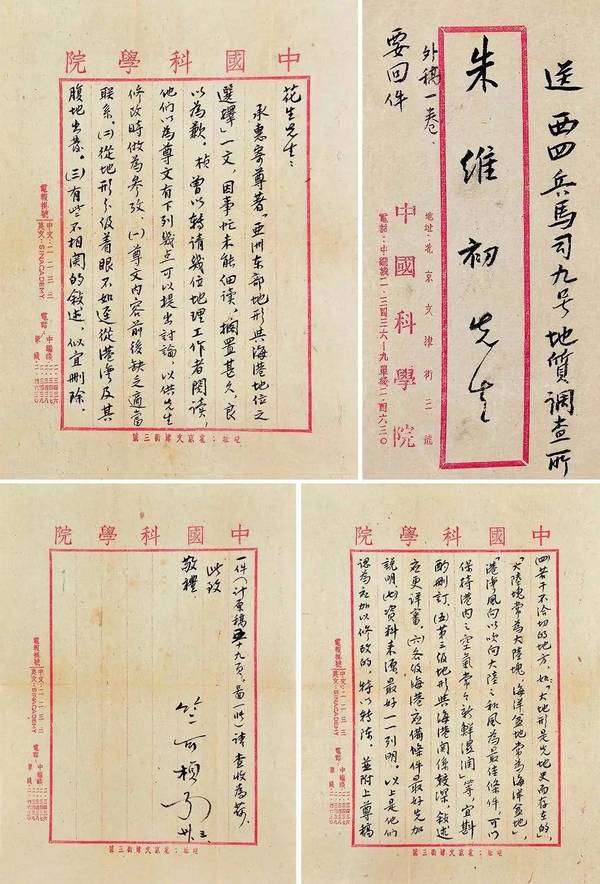 中國科學院
花生先生：
承惠寄尊著「亞洲东部地形與海港地位之
選擇」一文，因事忙未能細读，擱置甚久，良
以為歉。楨曾以轉请幾位地理工作者閱读，
他们以為尊文有下列幾点可以提出討論，以供先生
修改時做為参攷，(一)尊文内容前後缺乏適當
联系，(二)從地形分级着眼不如逕從港灣及其
腹地出發。(三)有些不相関的敘述，似宜删除。
電報掛號
中文：二一三三
英文：SINACADEMY
電話
中繼線
單線
地址：北京文津街三號
送 西四兵馬司九号 地質調查所
朱維初先生
外稿一卷、
要回件
地址：北京文津街三號
中國科學院
電話：中繼線二·三四三六—九單線二·四六三〇
中國科學院
(四)若干不洽切的地方，如：「大地形是先地史而存在的」，
「大陸塊常為大陸塊，海洋盆地常為海洋盆地」，
「港灣風向以吹向大陸之和風為最佳條件，可以
保持港内之空氣常々新鲜湿润」等，宜斟
酌删訂，(五)第三级地形與海港関係較深，敘述
应更详審，(六)各级海港应備條件最好先加
説明，(七)資料来源最好一一列明。以上是他们
認為应加以修改的，特以轉陈，並附上尊稿
電報掛號
中文：二一三三
英文：SINACADEMY
電話
中繼線
單線
地址：北京文津街三號
中國科學院
一件(计原稿五十九頁，啚一帋)请查收為荷。
此致
敬禮
竺可楨
電報掛號
中文：二一三三
英文：SINACADEMY
電話
中繼線
單線
地址：北京文津街三號